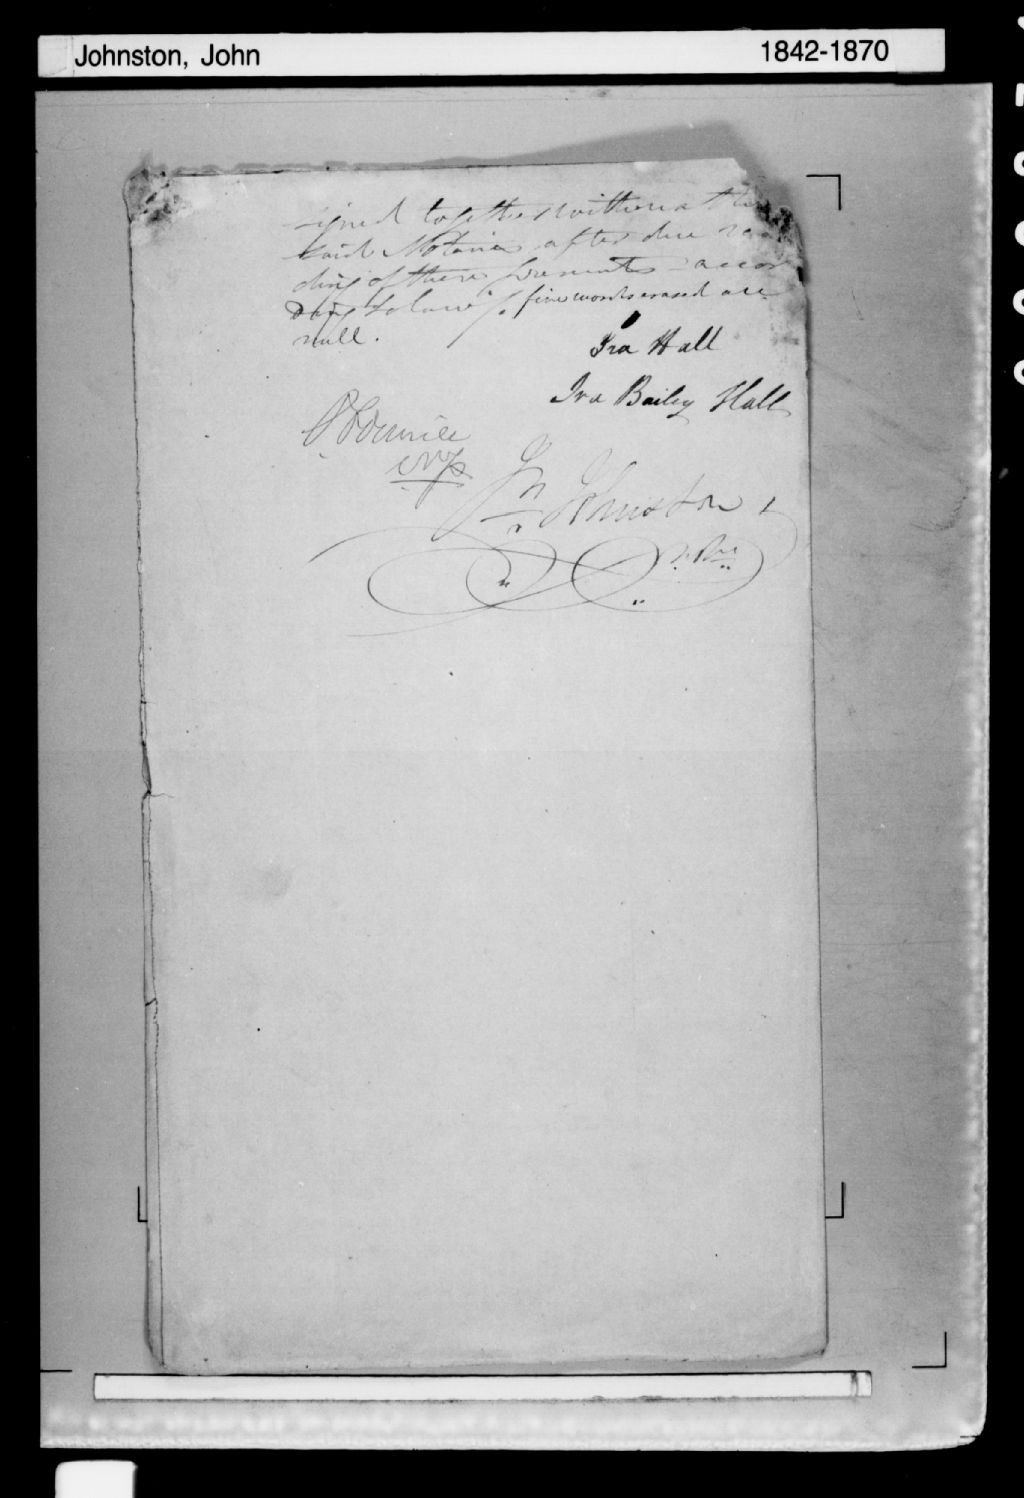 Johnston, John 1842-1870
signed together with us the
said Notaries after due rea
ding of these presents accor
ding to law. five words erased are
null.
Ira Hall
Ira Bailey Hall
N.P.
Jn Johnston